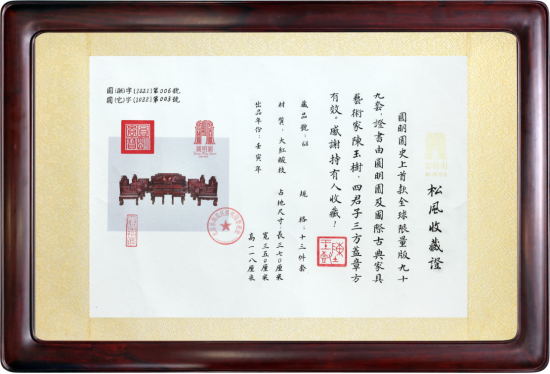 松風收藏證
圓明園史上首款全球限量版九十
九套，證書由圓明園及國際古典家具
藝術家陳玉樹、四君子三方蓋章方
有效。感謝持有人收藏！
藏品號：68
規格：十三件套
材質：大紅酸枝
占地尺寸：長三七〇厘米
寬三五〇厘米
高一一八厘米
出品年份：壬寅年
圓(訓)字(2021)第006號
圓(它)字(2022)第003號
圓明園